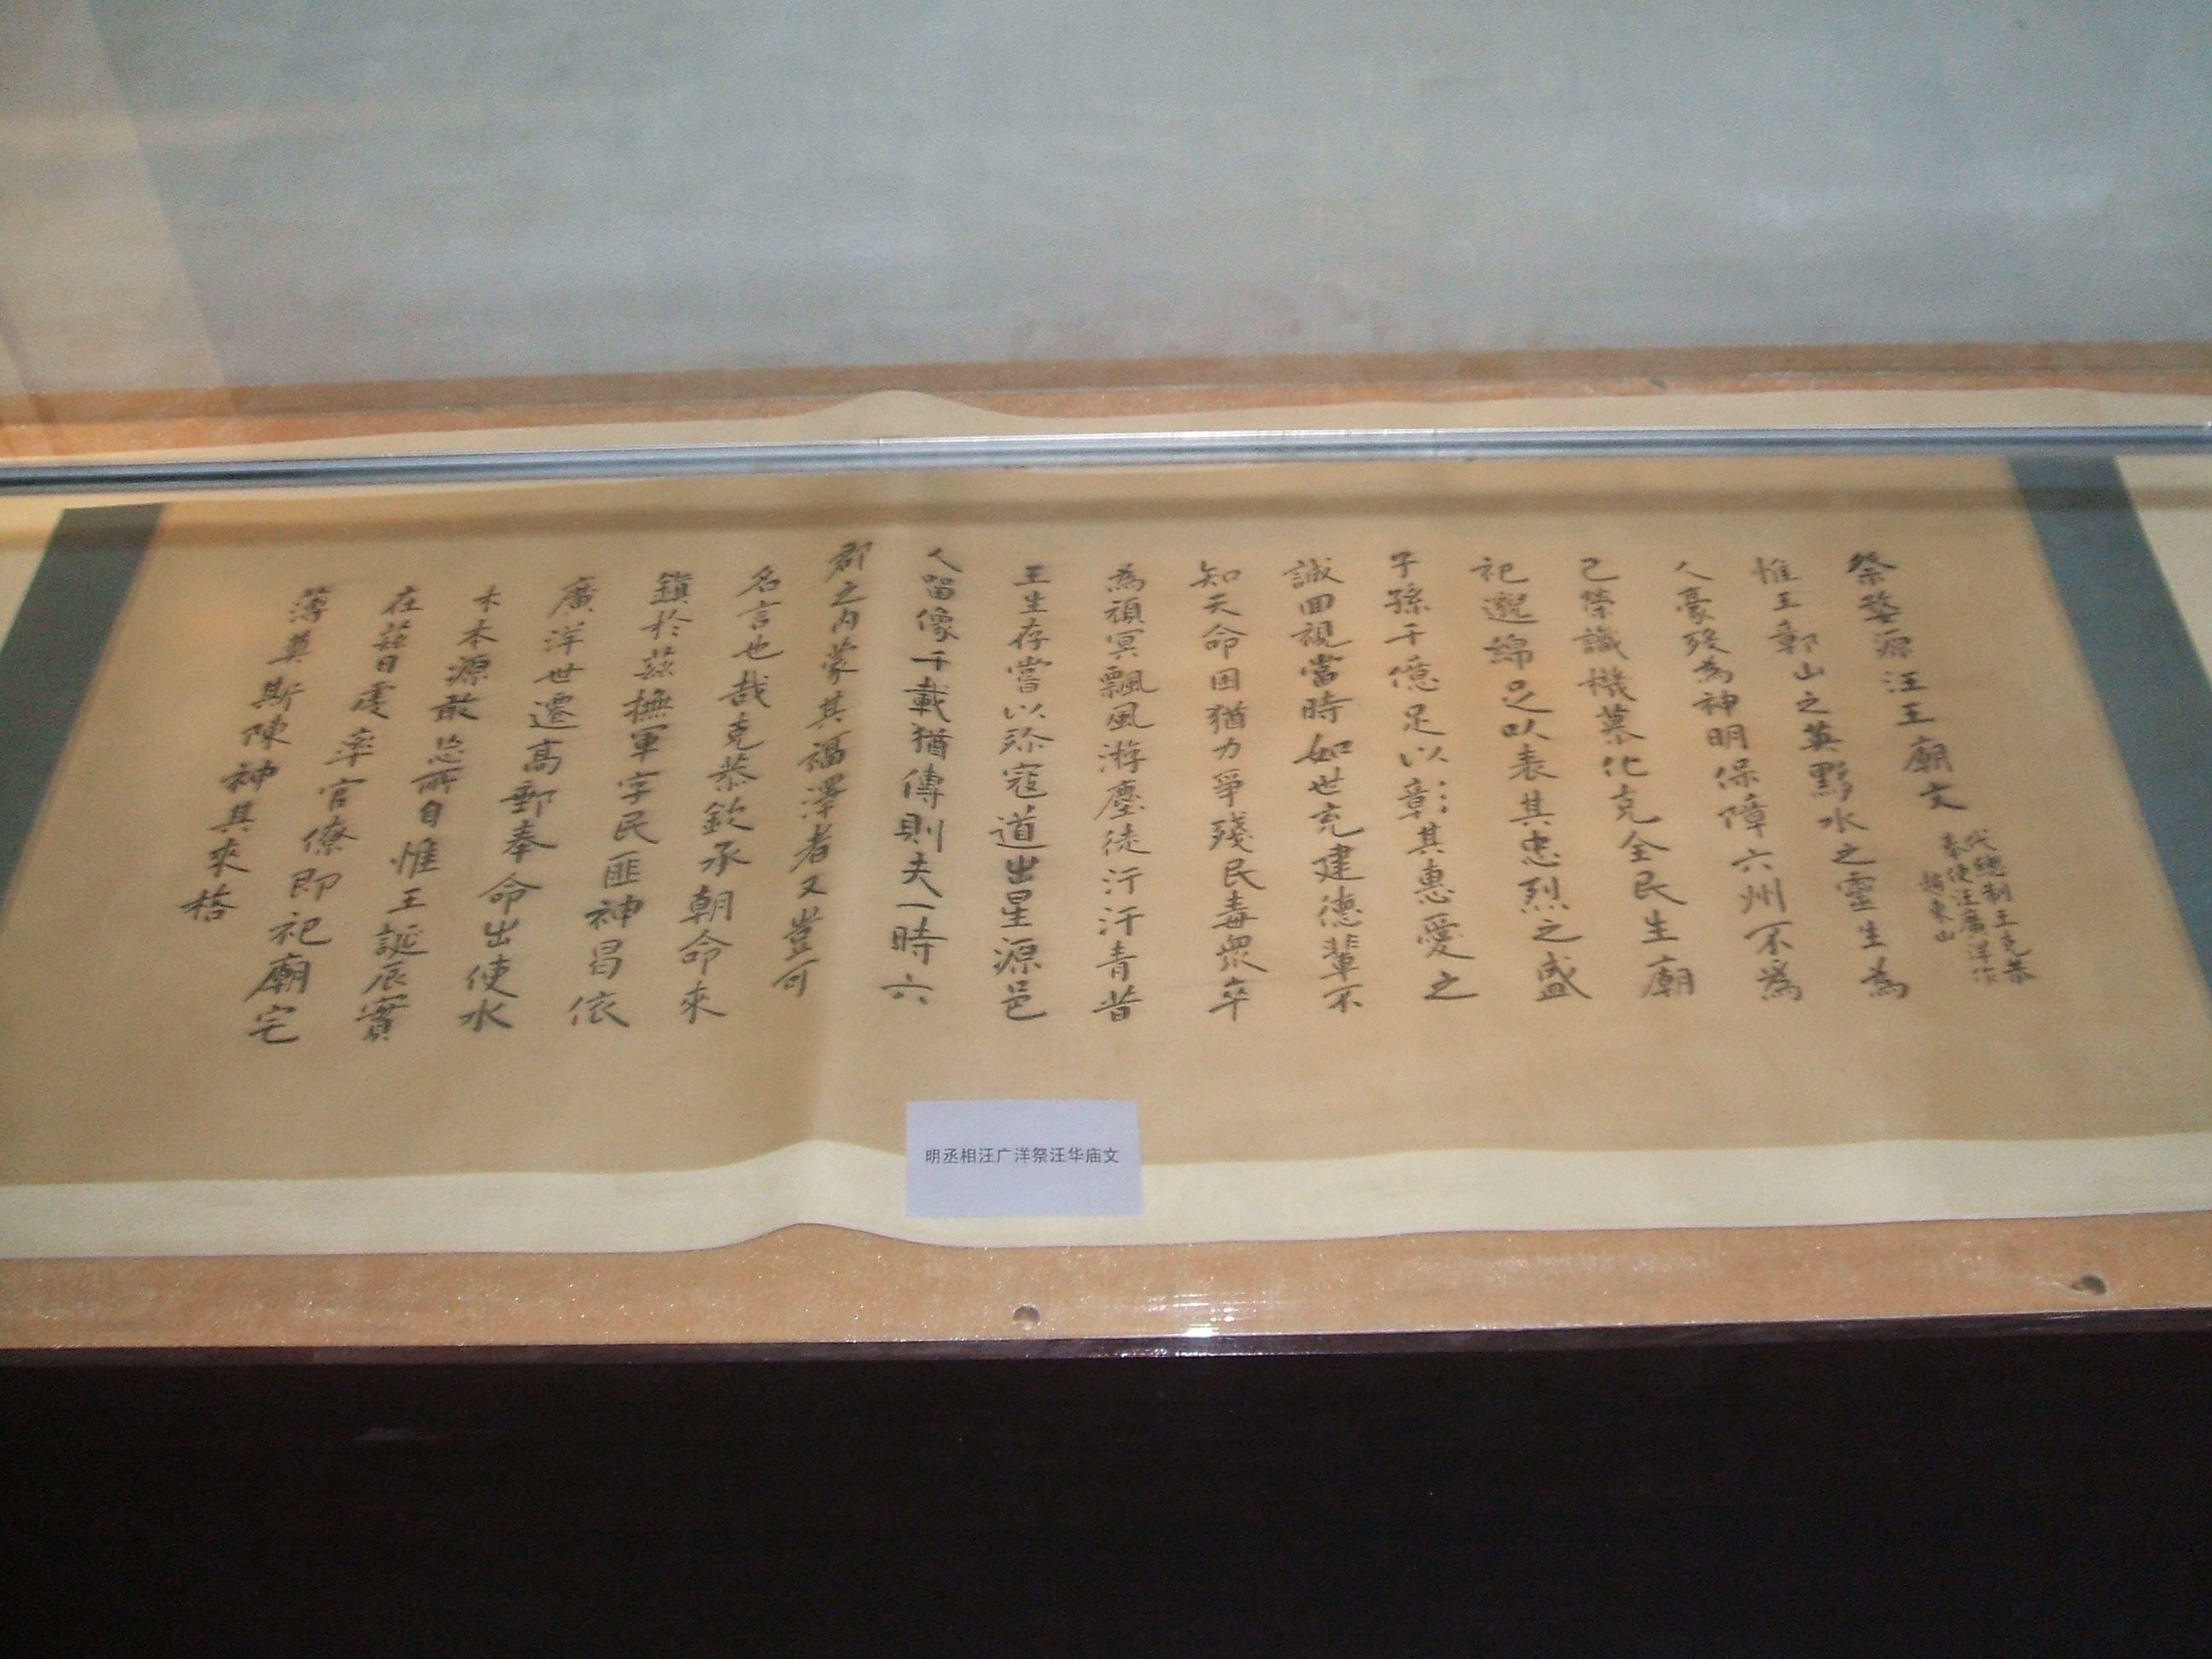 祭婺源汪王廟文
代總制王克恭
奉使汪廣洋作
趙東山
惟王鄣山之英黟水之靈生為
人豪殁為神明保障六州不為
己榮識機慕化克全民生廟
祀邈綿足以表其忠烈之盛
子孫千億足以彰其惠愛之
誠回視當時如世充建德輩不
知天命因猶力爭殘民毒衆卒
為頑冥飄風游塵徒汗汗青昔
王生存嘗以弥寇道出星源邑
人留像千載猶傳則夫一時六
郡之内蒙其福澤者又豈可
名言也哉克恭欽承朝命來
鎮於茲撫軍字民匪神曷依
廣洋世遷高郵奉命出使水
木本源敢忘所自惟王誕辰實
在茲日虔率官僚即祀廟宅
薄奠斯陳神其來格
明丞相汪广洋祭汪华庙文